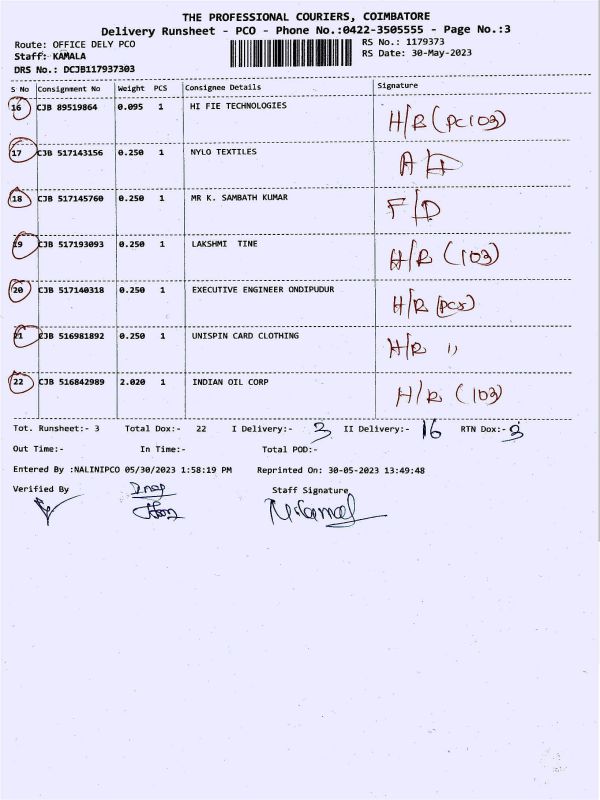 THE PROFESSIONAL COURIERS, COIMBATORE
Delivery Runsheet - PCO - Phone No.:0422-3505555 - Page No.:3
Route: OFFICE DELY PCO RS No.: 1179373
Staff: KAMALA RS Date: 30-May-2023
DRS No.: DCJB117937303
S No Consignment No Weight PCS Consignee Details Signature
16 CJB 89519864 0.095 1 HI FIE TECHNOLOGIES H/R (PC103)
17 CJB 517143156 0.250 1 NYLO TEXTILES
18 CJB 517145760 0.250 1 MR K. SAMBATH KUMAR F/D
19 CJB 517193093 0.250 1 LAKSHMI TINE H/R (103)
20 CJB 517140318 0.250 1 EXECUTIVE ENGINEER ONDIPUDUR H/R
21 CJB 516981892 0.250 1 UNISPIN CARD CLOTHING H/R "
22 CJB 516842989 2.020 1 INDIAN OIL CORP H/R (103)
Tot. Runsheet:- 3 Total Dox:- 22 I Delivery:- 3 II Delivery:- 16 RTN Dox:- 3
Out Time:- In Time:- Total POD:-
Entered By :NALINIPCO 05/30/2023 1:58:19 PM Reprinted On: 30-05-2023 13:49:48
Verified By Staff Signature